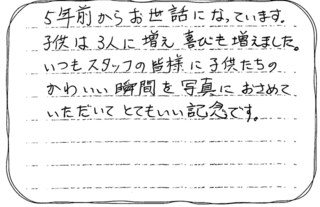 5年前からお世話になっています。
子供は3人に増え喜びも増えました。
いつもスタッフの皆様に子供たちの
かわいい瞬間を写真におさめて
いただいてとてもいい記念です。